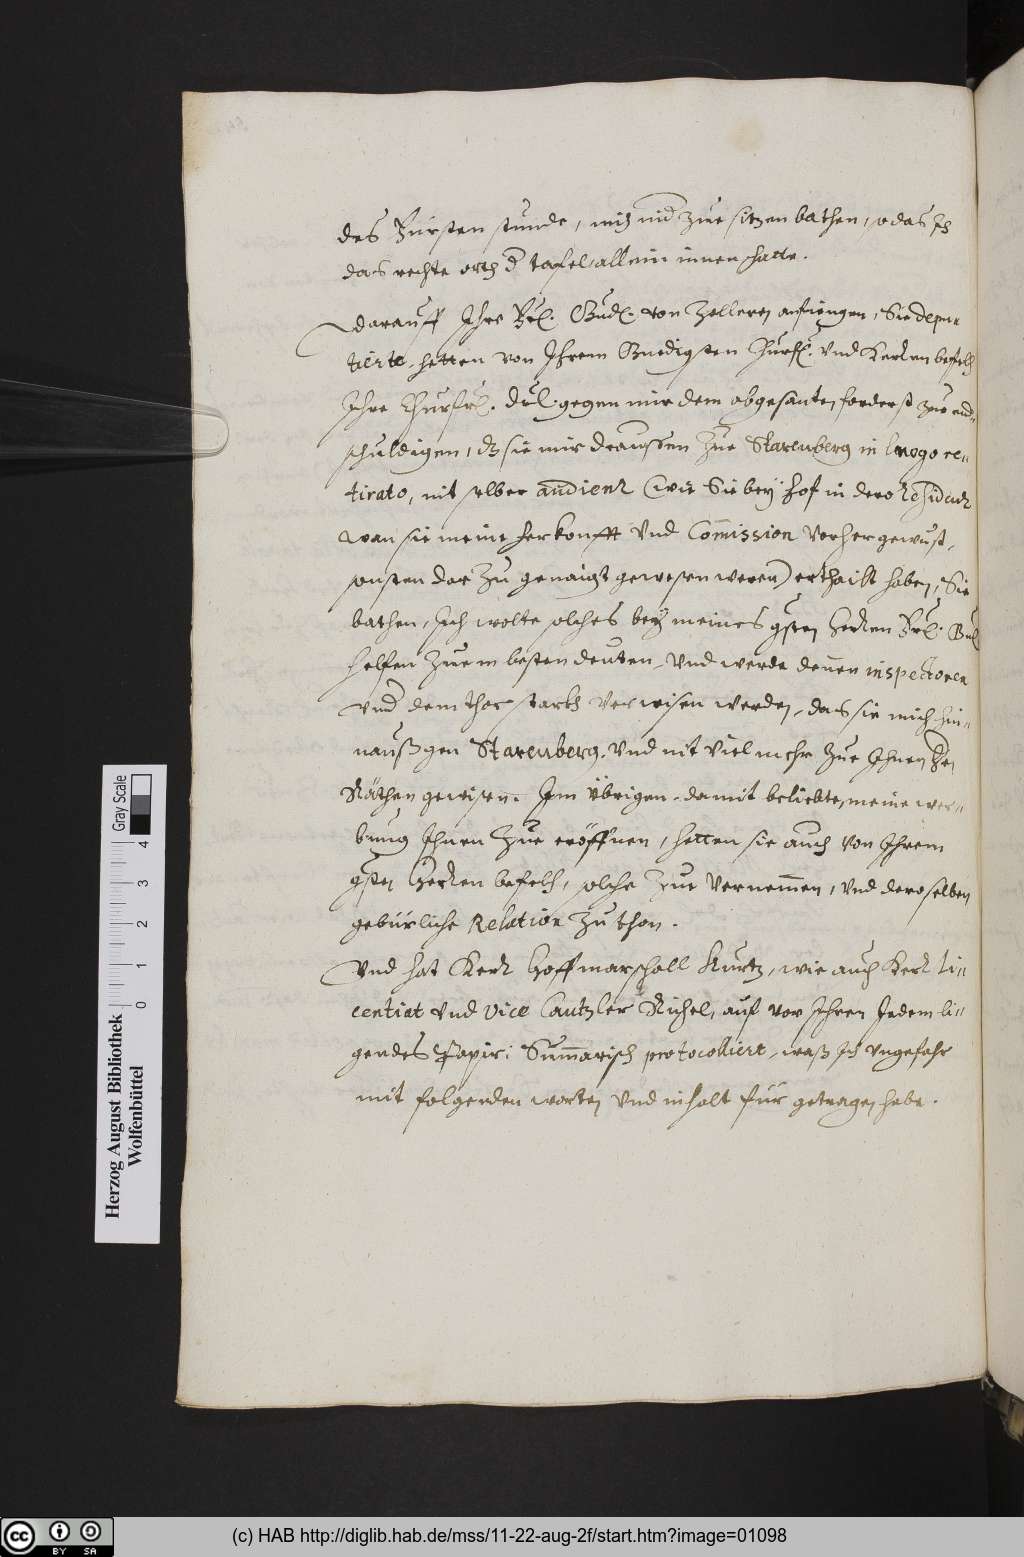 des Fürsten stunde, mich nider zue sitzen bathen, so das Ich
das rechte orth d tafel allein innen hatte.
darauff Ihre Frl. Gnd. von Zolleren anfiengen, Sie depu-
tierte hetten von Ihrem Gnedigsten Churf. und Herren befelch
Ihre Churfrl. Drl. gegen mir dem abgesanten forderst zue ent-
schuldigen, dz sie mir draussen zue Starenberg in luogo re-
tirato, nit selber audienz (wie Sie bey hof in dero Residenz
wan sie meine herkonfft und Commission vorher gewust,
sonsten dar zu genaigt gewesen weren) erthailt haben, Sie
bathen, Ich wolte solches bey meines gsten Herren Frl. Gnd
helfen zuem besten deuten, und werde denen inspectoren
und dem thor starkh verwisen werden, das sie mich hin-
nauß gen Starenberg, und nit viel mehr zue Ihnen
Räthen gewisen. Im übrigen damit beliebte, meine wer-
bung Ihnen zue eröffnen, hetten sie auch von Ihrem
gsten Herren befelch, solche zue vernemmen, und deroselben
gebürliche Relation zu thon.
Und hat Herr Hoffmarschall Kurtz, wie auch Herr li-
centiat und vice Cantzler Richel, auf vor Ihren Jedem li-
gendes Papir: Summarisch protocolliert, waß Ich ungefahr
mit folgenden worten und inhalt für getragen habe.
Herzog August Bibliothek
Wolfenbüttel
Gray Scale
0 1 2 3 4
(c) HAB http://diglib.hab.de/mss/11-22-aug-2f/start.htm?image=01098
cc BY SA